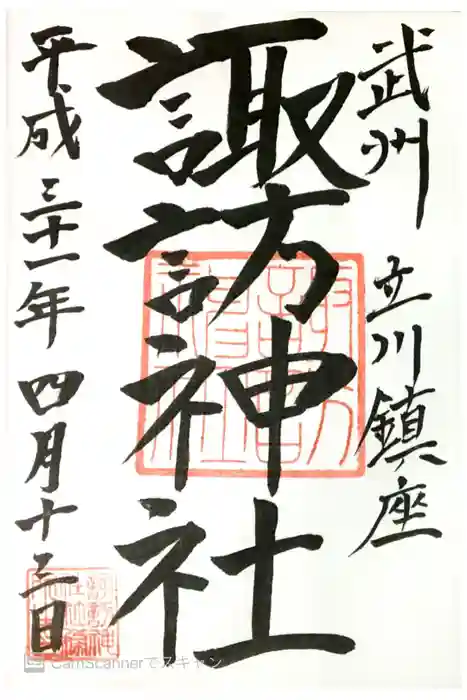 武州 立川鎮座
諏訪神社
平成三十一年 四月十三日
CamScannerでスキャン